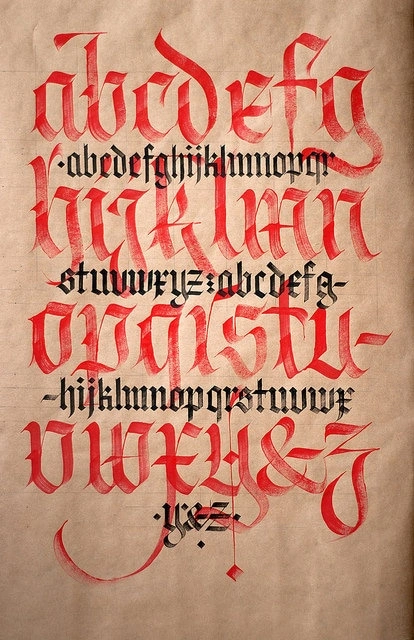 abcdefg
·abcdefghijklmnopqr
hijklmn
stuvwxyz:abcdefg-
opqrstu-
-hijklmnopqrstuvwx
vwxy&z
·y&z·